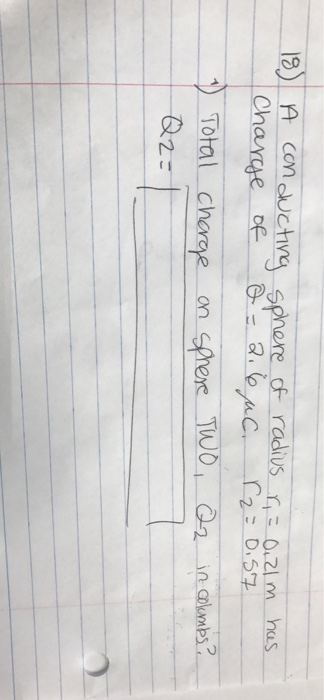 18) A conducting sphere of radius r₁ = 0.21m has
charge of Q = 2.6 μC. r₂ = 0.57
1) Total charge on sphere TWO, Q₂ in columbs?
Q2 =